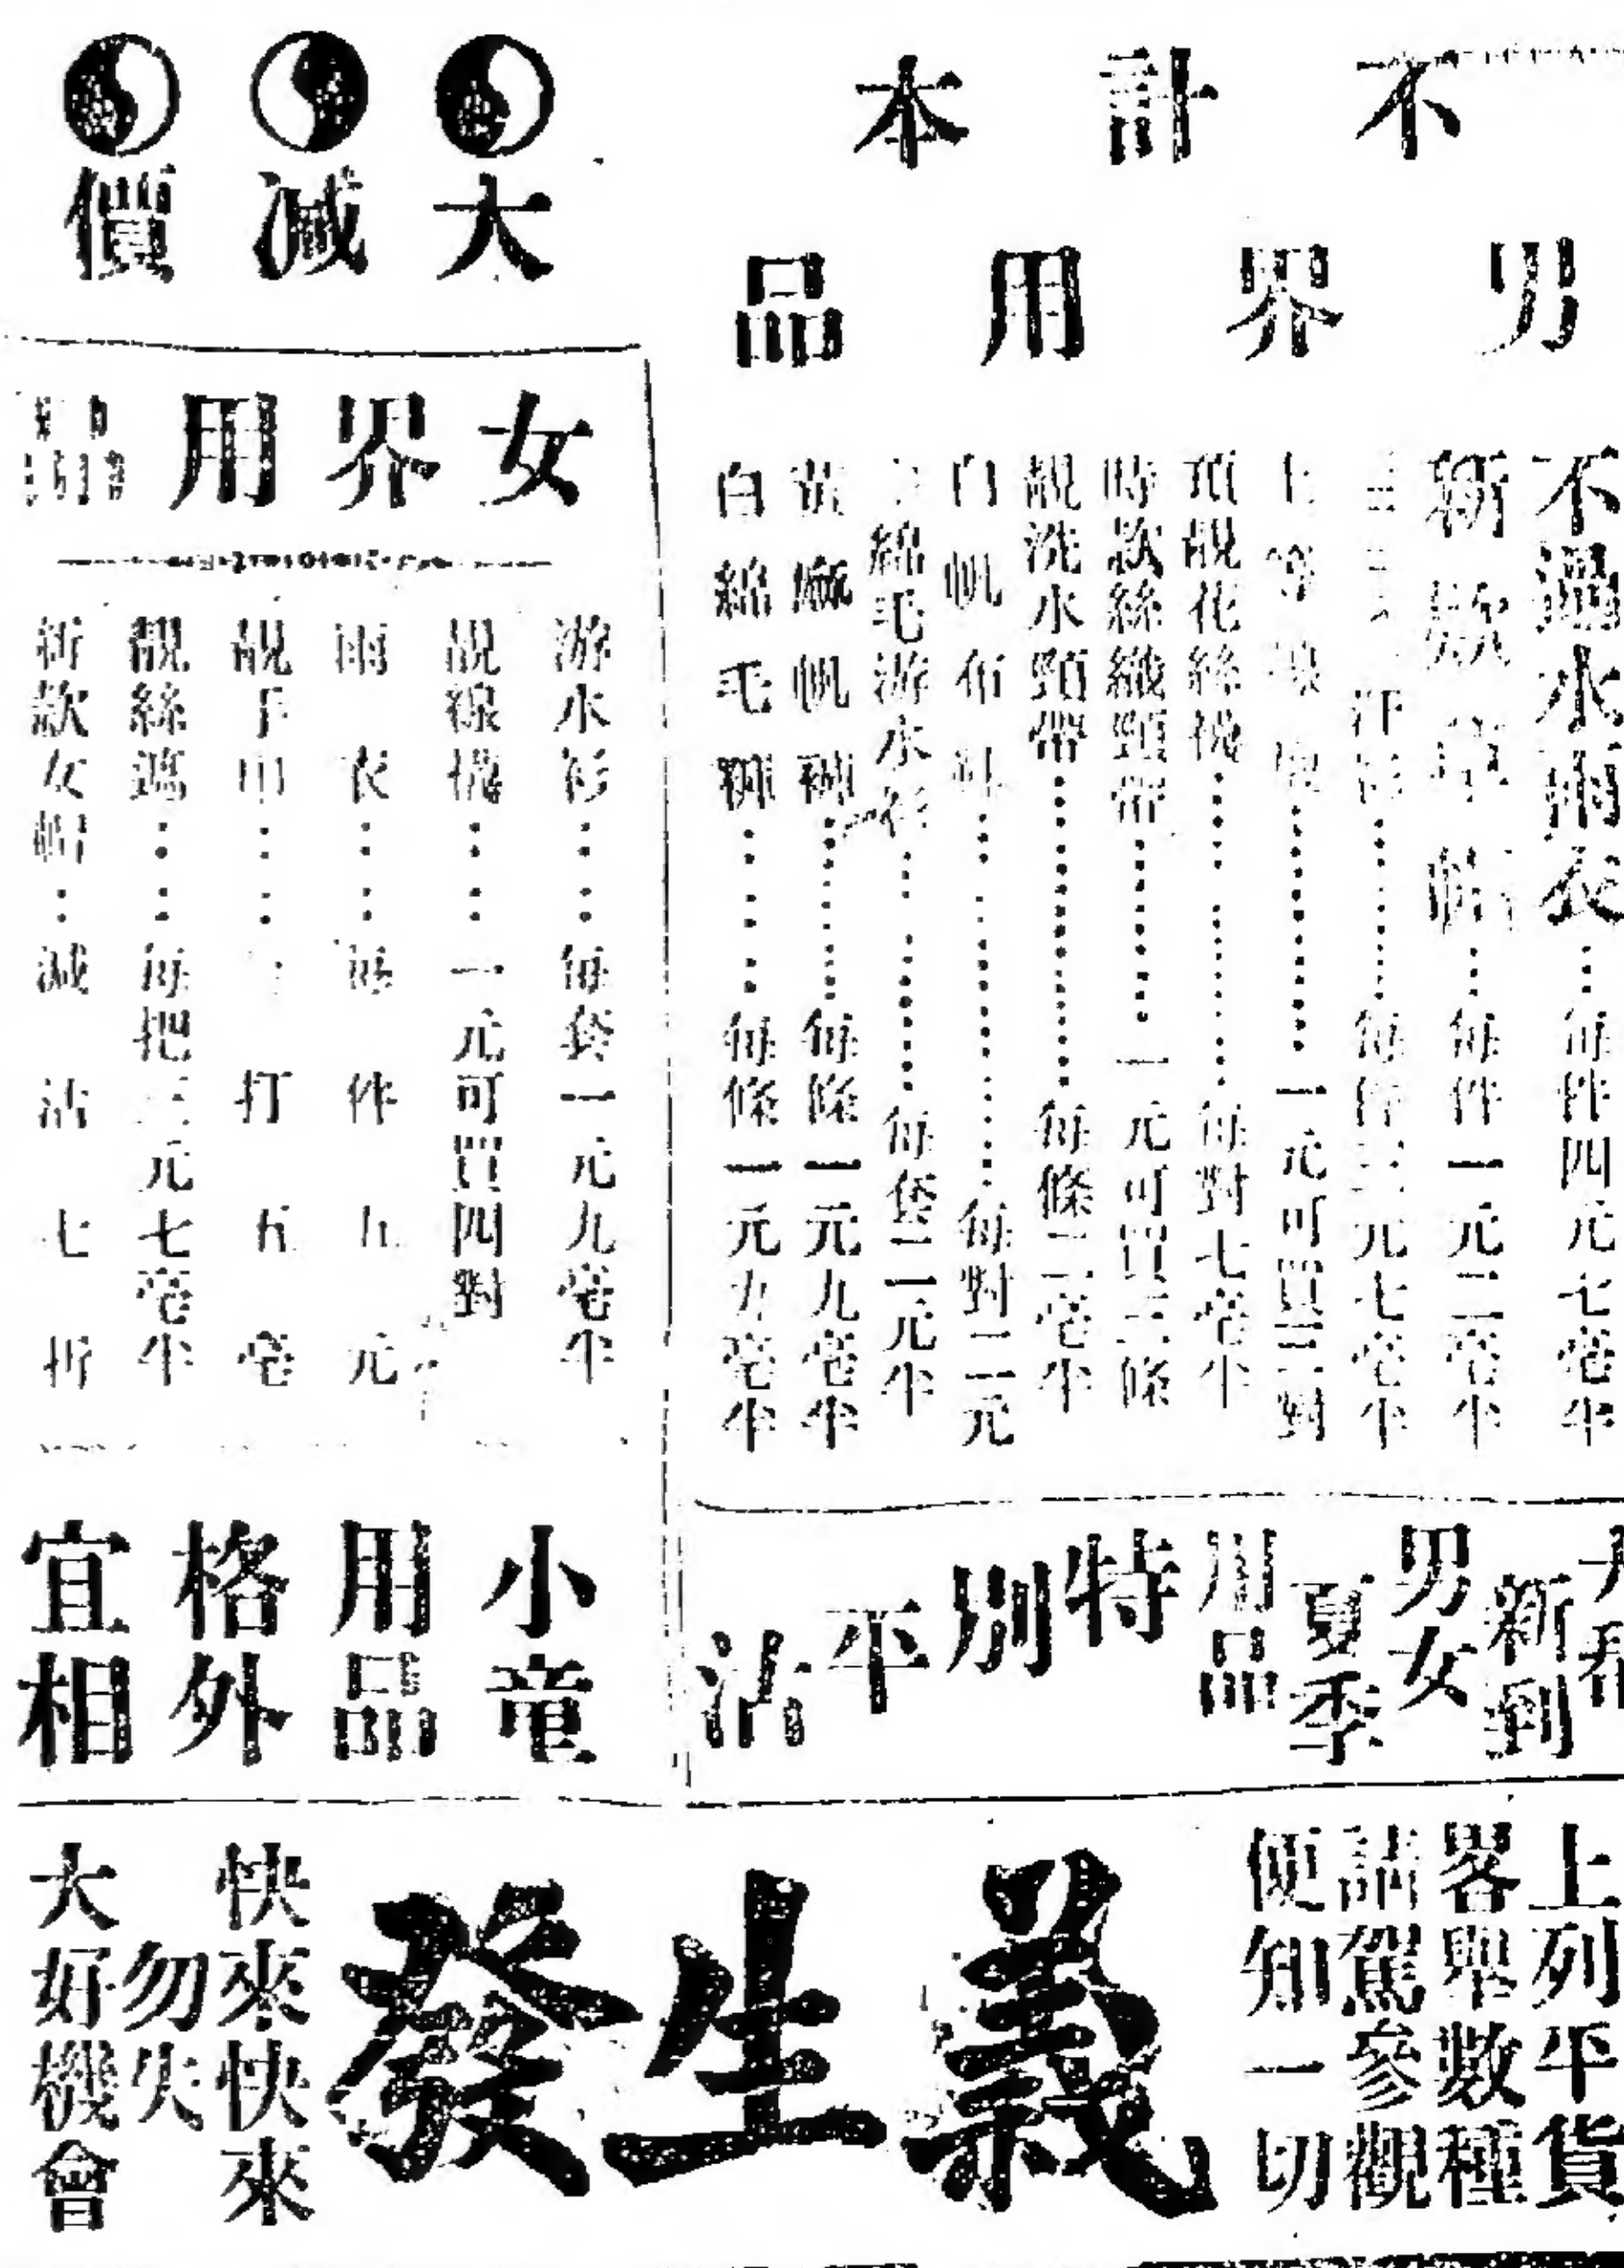 不計本
大減價
男界用品
不過水雨衣……每件四元七毫半
新欵草帽……每件一元二毫半
汗衫……每件二元七毫半
上等絲襪……一元可買三對
頂靚花絲襪……每對七毫半
時款絲織頸帶……一元可買三條
靚洗水頸帶……每條二毫半
白帆布鞋……每對二元
綿毛游水衫……每套二元半
黃麻帆褲……每條一元九毫半
白綿毛褲……每條一元九毫半
女界用品
游水衫……每套一元九毫半
靚線襪……一元可買四對
雨衣……每件五元
靚手巾……打五毫
靚絲遮……每把三元七毫半
新款女帽…減沽七折
新到
男女
夏季
用品
特別平沽
小童
用品
格外
相宜
上列平貨
畧舉數種
請駕參觀
便知一切
義生發
快來快來
勿失
大好機會